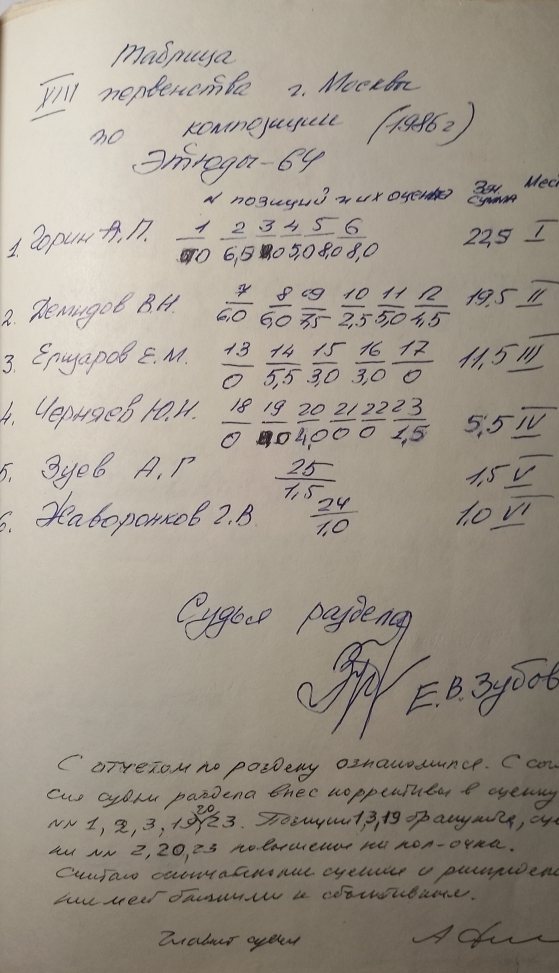 Таблица
XVIII первенства г. Москвы
по композиции (1986 г)
Этюды-64
№ позиций и их оценка Зач. сумма Мест
1. Горин А.П. 1 2 3 4 5 6 22,5 I
0 6,5 0 5,0 8,0 8,0
2. Демидов В.Н. 7 8 9 10 11 12 19,5 II
6,0 6,0 7,5 2,5 5,0 4,5
3. Ершаров Е.М. 13 14 15 16 17 11,5 III
0 5,5 3,0 3,0 0
4. Черняев Ю.Н. 18 19 20 21 22 23 5,5 IV
0 0 4,0 0 0 1,5
5. Зуев А.Г 25 1,5 V
1,5
6. Жаворонков Г.В. 24 1,0 VI
1,0
Судья раздела
Е.В. Зубов
С отчетом по разделу ознакомился. С согла
сия судьи раздела внес коррективы в оценку
№№ 1, 2, 3, 19, 20, 23. Позиции 1,3,19 бракуются, оце
ки №№ 2, 20, 23 повышены на пол-очка.
Считаю окончательные оценки и распределе
ние мест близкими к объективным.
Главный судья